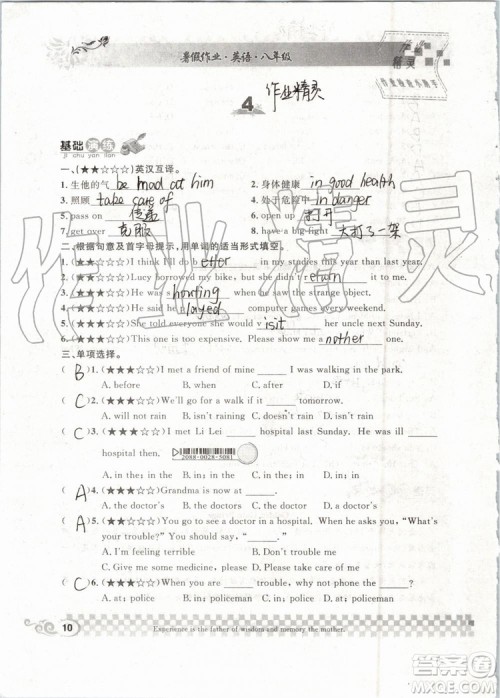 暑假作业·英语·八年级
精灵
4 作业精灵
基础演练
ji chu yan lian
一、(★★☆☆☆)英汉互译。
1. 生他的气 be mad at him 2. 身体健康 in good health
3. 照顾 take care of 4. 处于危险中 in danger
5. pass on 传递 6. open up 打开
7. get over 克服 8. have a big fight 大打了一架
二、根据句意及首字母提示,用单词的适当形式填空。
1. (★★☆☆☆)I think I'll do better in my studies this year than last year.
2. (★★☆☆☆)Lucy borrowed my bike, but she didn't return it.
3. (★★★☆☆)He was hunting around for the strange object.
4. (★★★☆☆)He said he played computer games every weekend.
5. (★★★☆☆)She told everyone she would visit her uncle next Sunday.
6. (★★★☆☆)This one is too expensive. Please show me another one.
三、单项选择。
( B )1. (★★★☆☆)I met a friend of mine ____ I was walking in the park.
A. before B. when C. after D. if
( C )2. (★★★☆☆)We'll go out for a walk if it ____ tomorrow.
A. will not rain B. isn't raining C. doesn't rain D. isn't rain
( C )3. (★★★☆☆)I met Li Lei ____ hospital last Sunday. He said he was ill ____
hospital then.
2088-0028-5081
A. in the; in the B. in; in C. in the; in D. in; in the
( A )4. (★★★☆☆)Grandma is now at ____.
A. the doctor's B. doctor's C. the doctor D. a doctor's
( A )5. (★★★☆☆)You go to see a doctor in a hospital. When he asks you, “What's
your trouble?” You answer, “____.”
A. I'm feeling terrible B. I'm feeling terribly
C. Give me some medicine, please D. Please take care of me
( C )6. (★★★☆☆)When you are ____ trouble, why not phone the ____?
A. at; police B. in; policeman C. in; police D. at; policeman
10 Experience is the father of wisdom and memory the mother.
作业精灵
答案圈
MXQE.COM